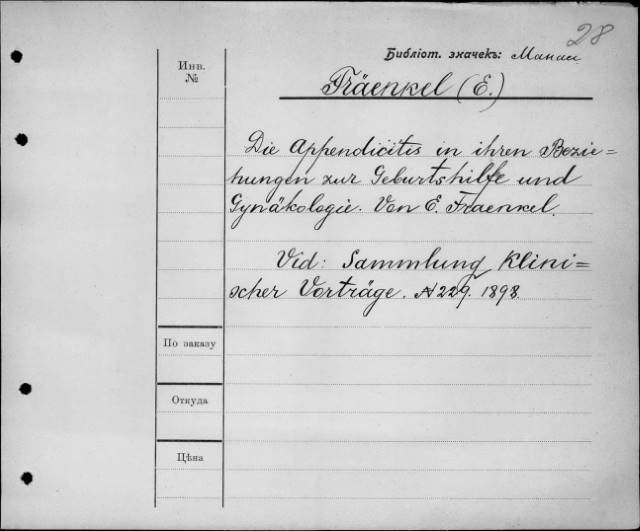 28
Библіот. значекъ: Манасс
Инв.
№
Fräenkel (E.)
Die Appendicitis in ihren Bezie=
hungen zur Geburtshilfe und
Gynäkologie. Von E. Fraenkel.
Vid: Sammlung Klini=
scher Vorträge. № 229. 1898.
По заказу
Откуда
Цѣна